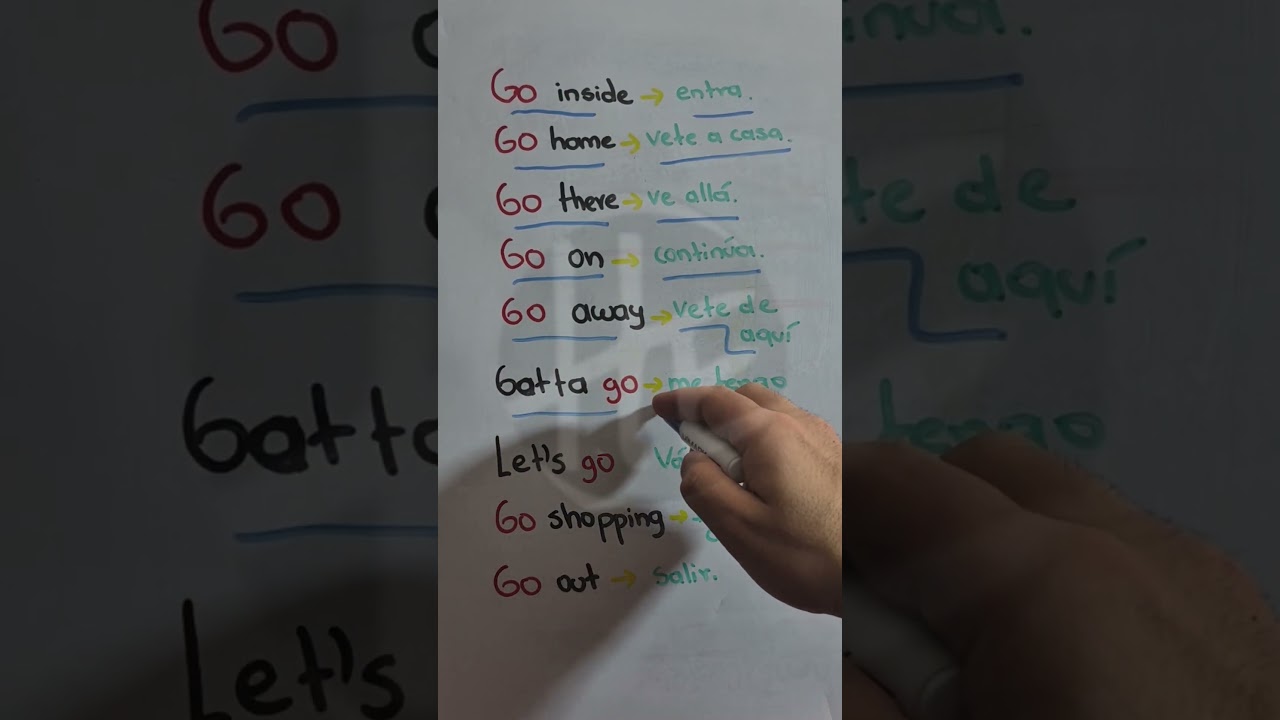 Go inside → entra.
Go home → vete a casa.
Go there → ve allá.
Go on → continúa.
Go away → vete de
aquí
Gatta go → me tengo
Let's go
Go shopping →
Go out → salir.